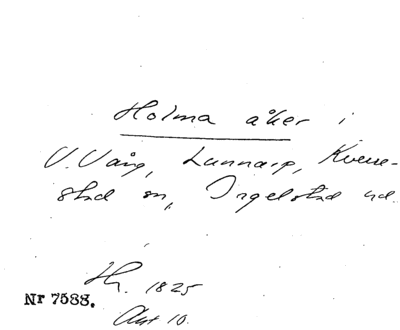 Holma åker i
V. Vång, Lunnarp, Kverre-
stad sn, Ingelstad hd.
Hr. 1825
Nr 7588.
Akt 10.